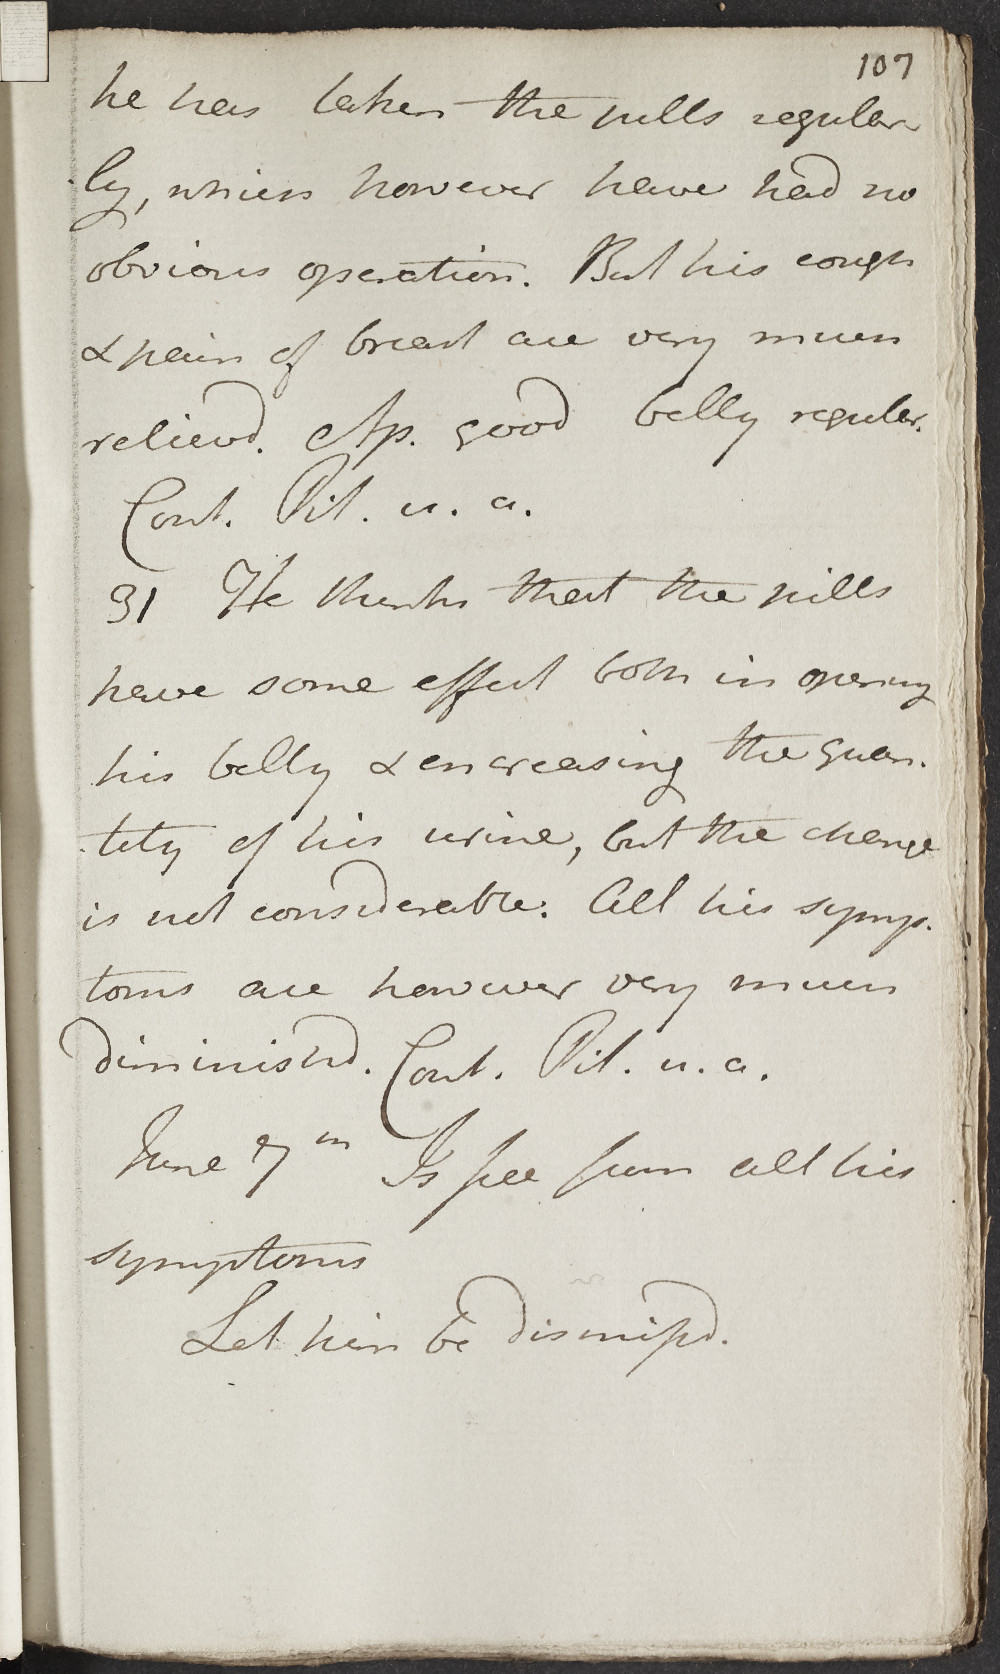 107
he has taken the pills regular
ly, which however have had no
obvious operation. But his cough
& pain of breast are very much
relievd. Ap. good belly regular.
Cont. Pil. u. a.
31 He thinks that the pills
have some effect both in opening
his belly & encreasing the quan.
tity of his urine, but the change
is not considerable. All his symp.
toms are however very much
diminishd. Cont. Pil. u. a.
June 7th Is free from all his
symptoms
Let him be dismissd.